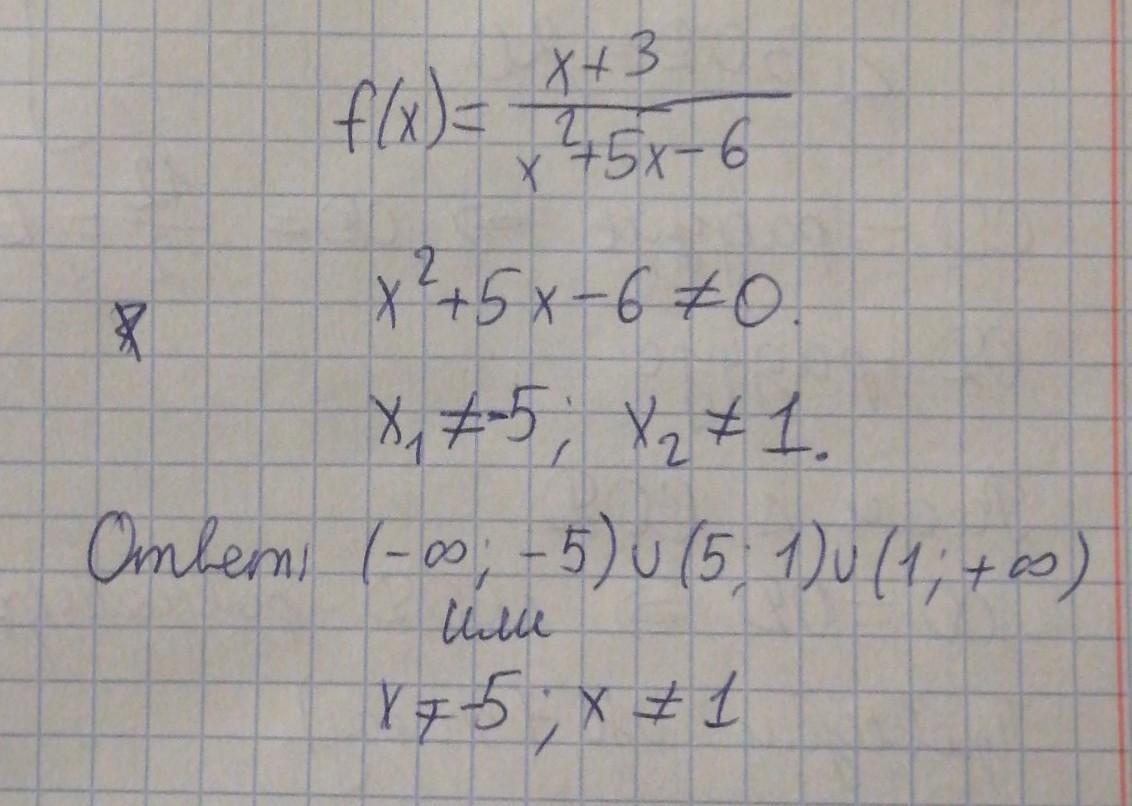 f(x) = (x+3)/(x²+5x-6)
x²+5x-6≠0.
x₁≠-5; x₂≠1.
Ответ: (-∞; -5)∪(5; 1)∪(1; +∞)
или
x≠-5; x≠1